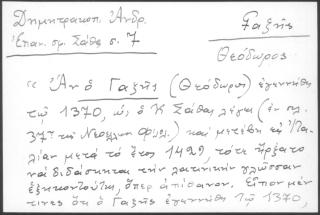 Δημητρακοπ. Ἀνδρ.
Ἐπαν. σφ. Σάθα σ. 7
Γαζῆς
Θεόδωρος
"Ἂν ὁ Γαζῆς (Θεόδωρος) ἐγεννήθη
τῷ 1370, ὡς ὁ Κ Σάθας λέγει (ἐν σελ.
37 τῆς Νεοελλην Φιλολ.) καὶ μετέβη εἰς Ἰτα-
λίαν μετὰ τὸ ἔτος 1429, τότε ἤρξατο
νὰ διδάσκηται τὴν λατινικὴν γλῶσσαν
ἑξηκοντούτης, ὅπερ ἀπίθανον. Εἴπομεν
τινες ὅτι ὁ Γαζῆς ἐγεννήθη τῷ 1370,